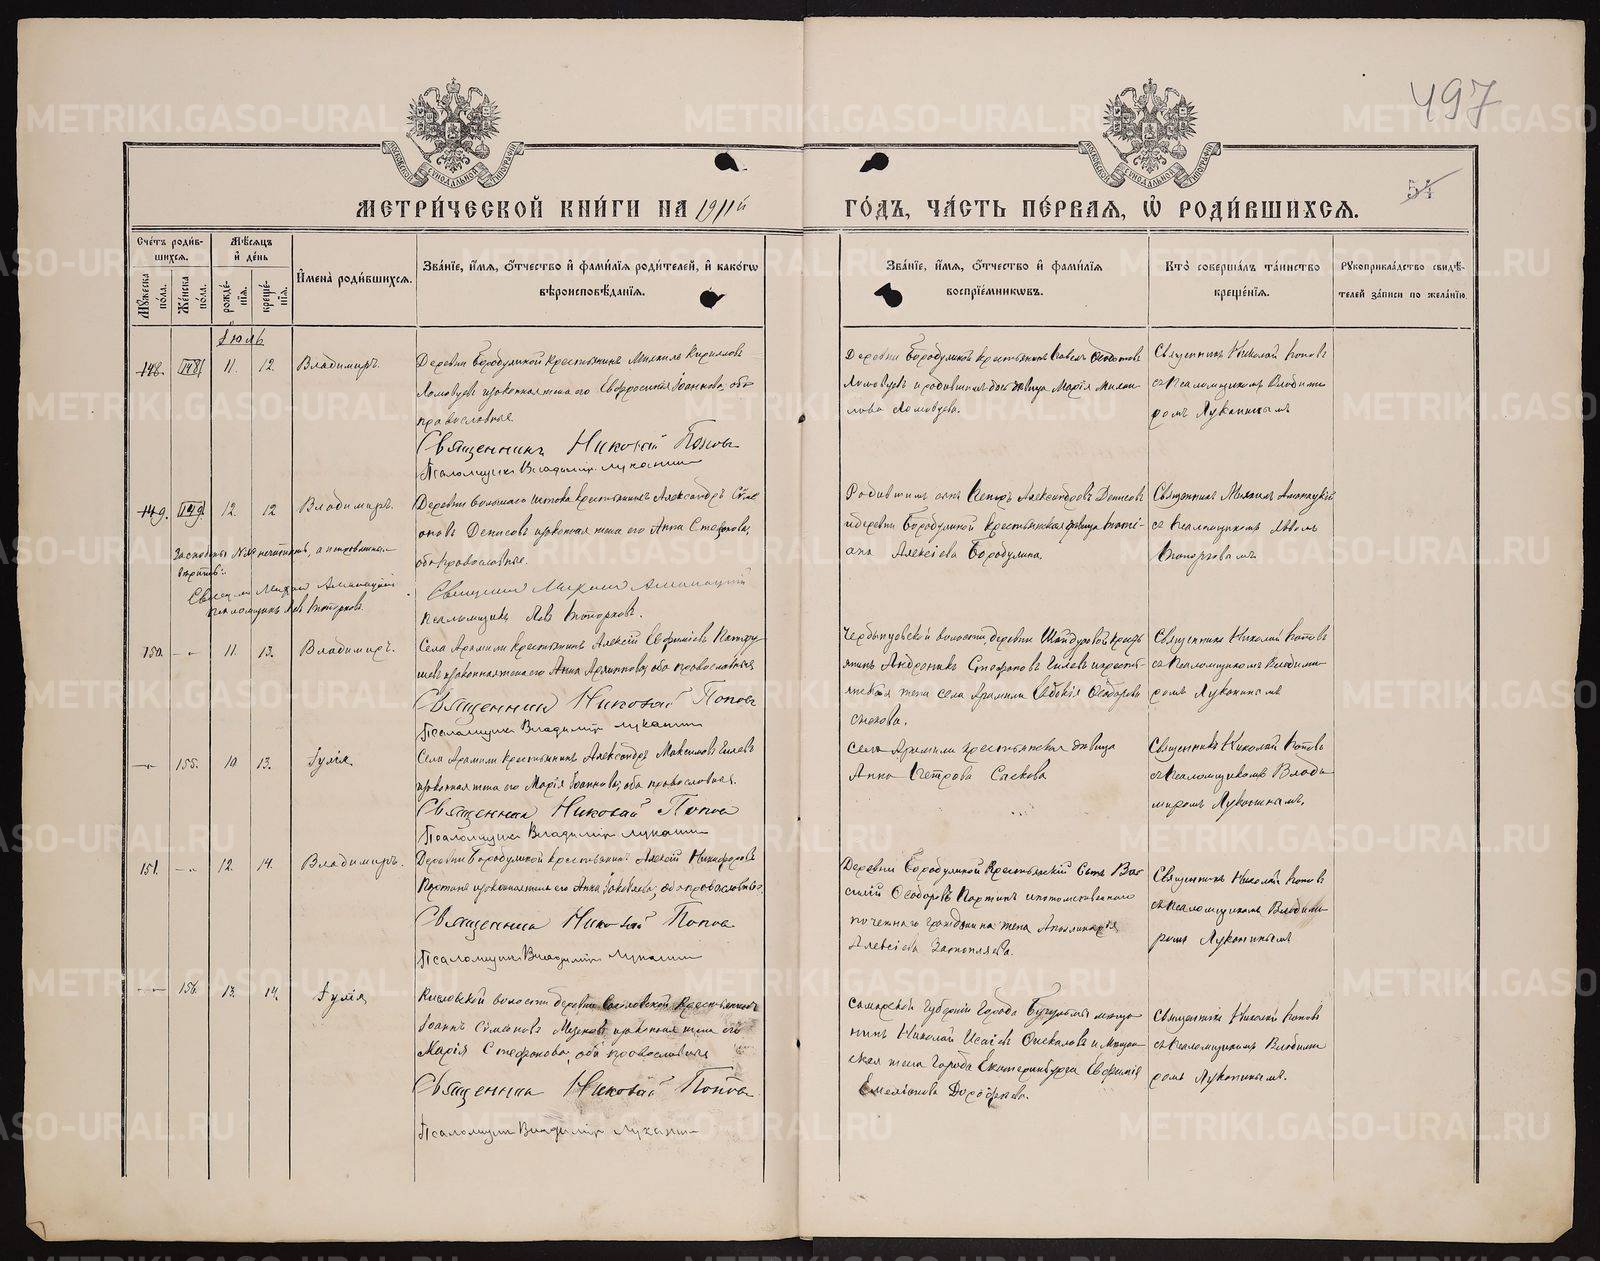 497
54
МЕТРИ́ЧЕСКОЙ КНИ́ГИ НА 1911й
ГО́ДЪ, ЧА́СТЬ ПЕ́РВАЯ, Ѡ РОДИ́ВШИХСЯ.
Сче́тъ роди́в-
шихся.
Мѣ́сяцъ
и де́нь
Имена̀ роди́вшихся.
Зва́ніе, и́мя, о́тчество и фами́лія роди́телей, и како́гѡ
вѣроисповѣ́данія.
Зва́ніе, и́мя, о́тчество и фами́лія
воспріе́мникѡвъ.
Кто̀ соверша́лъ та́инство
креще́нія.
Рукоприкла́дство свидѣ́-
телей за́писи по жела́нію.
Мꙋ́жеска
по́ла.
Же́нска
по́ла.
рожде́-
нія.
креще́-
нія.
Іюль
148. 148 11. 12. Владимиръ.
Деревни Бородулиной крестьянинъ Михаилъ Кирилловъ
Ломовцевъ и законная жена его Евфросинія Іоаннова, оба
православные.
Священникъ Николай Поповъ
Псаломщикъ Владимiръ Луканинъ
Деревни Бородулиной крестьянинъ Павелъ
Ломовцевъ и родившихся дѣвица Марія Михаи-
лова Ломовцева.
Священникъ Николай Поповъ
съ Псаломщикомъ Владими
ромъ Луканинымъ
149. 149. 12. 12 Владимиръ.
Деревни Большаго Истока крестьянинъ Александръ Сѵме
оновъ Денисовъ и законная жена его Анна Стефанова,
оба православные.
Священникъ Михаилъ
Псаломщикъ Левъ Топорковъ.
Родившихся сынъ Петръ Александровъ Денисовъ
и деревни Бородулиной крестьянская дѣвица Тати-
ана Алексіева Бородулина.
Священникъ Михаилъ
съ Псаломщикомъ Львомъ
Топорковымъ
150. -"- 11. 13. Владимиръ.
Села Арамили крестьянинъ Алексій Евфиміевъ Патру
шевъ и законная жена его Анна Архиппова, оба православные.
Священникъ Николай Поповъ
Псаломщикъ Владимiръ Луканинъ
волости, деревни Шайдуровой кресть
янинъ Андроникъ Стефановъ Гилевъ и кресть-
янская жена села Арамили Евдокія Ѳеодорова
Священникъ Николай Поповъ
съ Псаломщикомъ Владими-
ромъ Луканинымъ
-"- 155. 10 13. Іулія
Села Арамили крестьянинъ Александръ Максимовъ Гилевъ
и законная жена его Марія Іоаннова, оба православные.
Священникъ Николай Поповъ
Псаломщикъ Владимiръ Луканинъ
Села Арамили крестьянская дѣвица
Анна Петрова Спекова
Священникъ Николай Поповъ
съ Псаломщикомъ Влади
миромъ Луканинымъ.
151. -"- 12. 14. Владимиръ.
Деревни Бородулиной крестьянинъ Алексій Никифоровъ
Портинъ и законная жена его Анна Іаковлева, оба православные.
Священникъ Николай Поповъ
Псаломщикъ Владимiръ Луканинъ
Деревни Бородулиной Крестьянскій Сынъ Ва-
силій Ѳеодоровъ Портинъ и потомственнаго
почетнаго гражданина жена Аполлинарія
Алексіева
Священникъ Николай Поповъ
съ Псаломщикомъ Владими-
ромъ Луканинымъ
-"- 156. 13. 14. Іулія
волости деревни крестьянинъ
Іоаннъ Сѵмеоновъ и законная жена его
Марія Стефанова, оба православные
Священникъ Николай Поповъ
Псаломщикъ Владимiръ Луканинъ
Самарской Губерніи Города Бугульмы мѣща
нинъ Николай Исаіевъ и Мѣщан
ская жена Города Екатеринбурга Евфимія
Емеліанова
Священникъ Николай Поповъ
съ Псаломщикомъ Владими
ромъ Луканинымъ.
METRIKI.GASO-URAL.RU